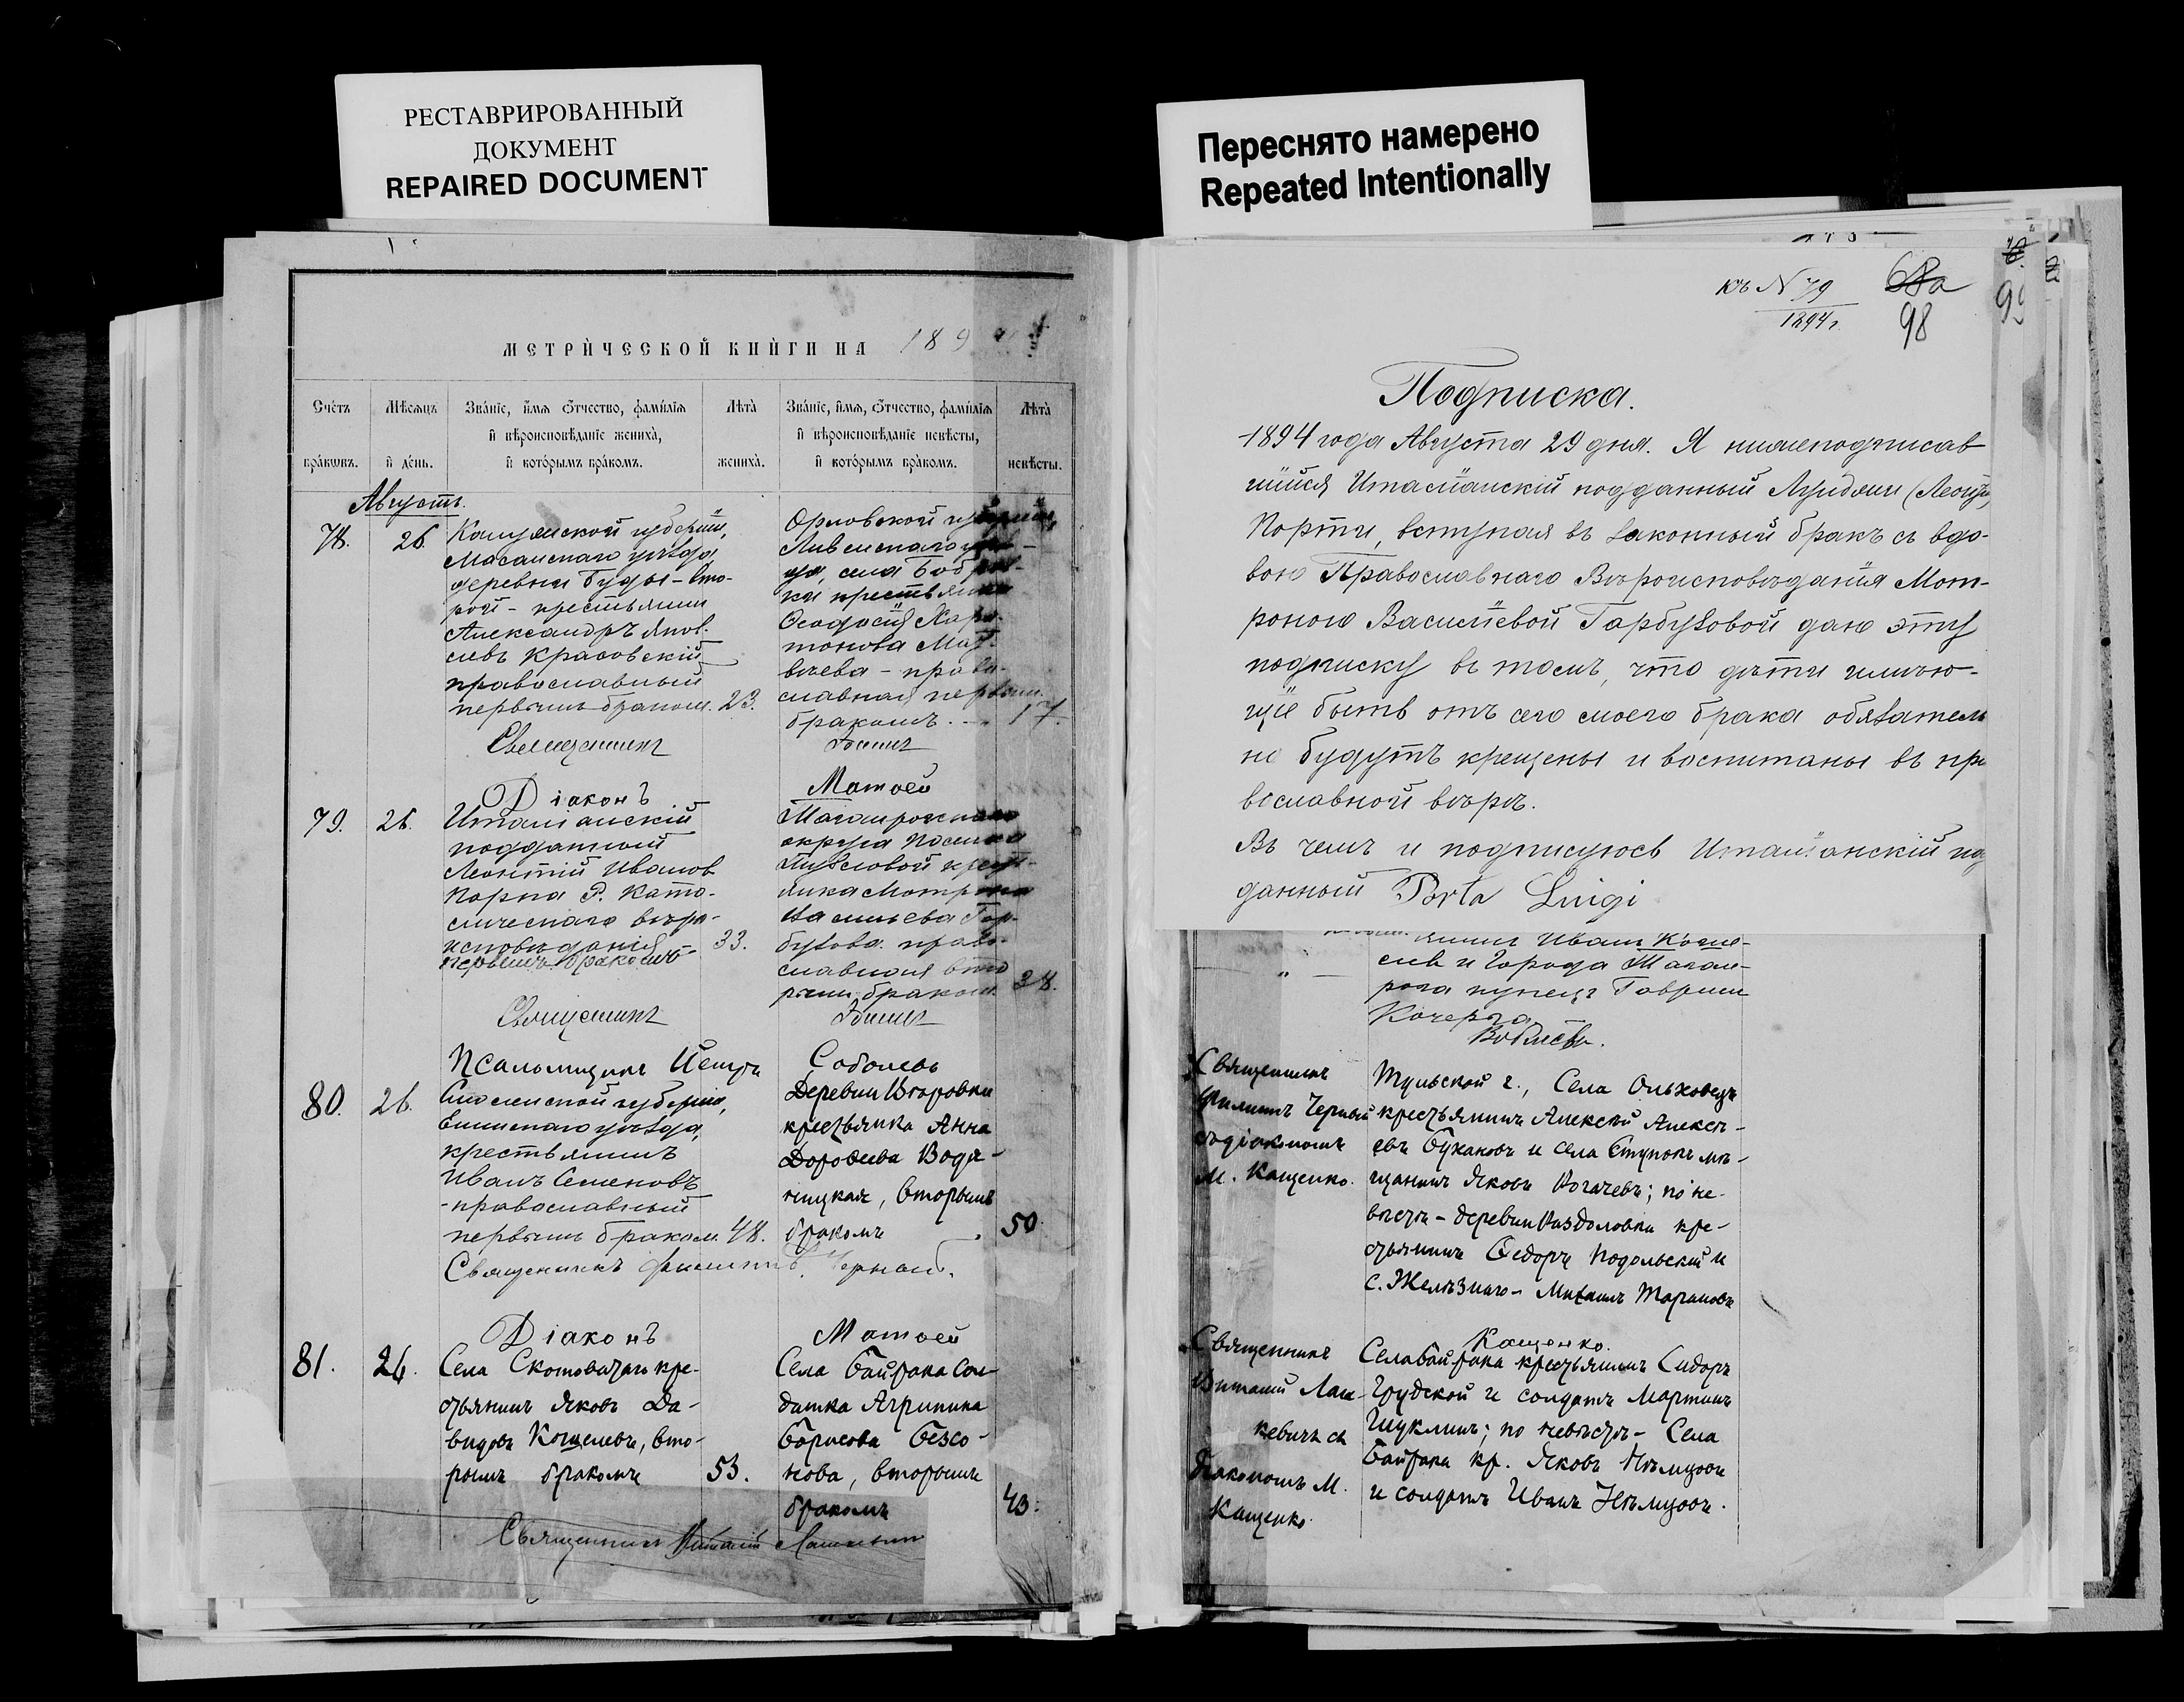 РЕСТАВРИРОВАННЫЙ
ДОКУМЕНТ
REPAIRED DOCUMENT
Переснято намерено
Repeated Intentionally
МЕТРИЧЕСКОЙ КНИГИ НА 189
Счетъ браковъ.
Мѣсяцъ и день.
Званіе, имя отчество, фамилія
и вѣроисповѣданіе жениха,
и которымъ бракомъ.
Лѣта
жениха.
Званіе, имя, отчество, фамилія
и вѣроисповѣданіе невѣсты,
и которымъ бракомъ.
Лѣта
невѣсты.
Августъ.
78.
26.
Калужской губерніи,
уѣзда
деревни Буды - Вто-
рой - крестьянинъ
Александръ Яков-
левъ Красовскій
православный
первымъ бракомъ. 23.
Орловской губерніи,
Ливенскаго
села
крестьянка
Феодосія Хари-
тонова Мат-
вѣева - право-
славная первым.
бракомъ. 17.
Священникъ
Діаконъ
Матѳей
79.
26.
Италіанскій
подданный
Леонтій Ивановъ
Порта Р. Като-
лическаго вѣро-
исповѣданія - 33.
первымъ бракомъ
Таганрогскаго
округа
крест-
янка Матрона
Васильева Гар-
бузова. право-
славная вто
рымъ браком. 38.
Священникъ
Псаломщикъ Петръ Соболевъ
80.
26.
Смоленской губерніи,
уѣзда,
крестьянинъ
Иванъ Семеновъ
- православный
первымъ браком. 48.
Деревни Егоровки
крестьянка Анна
Дороѳеева Водя-
ницкая, вторымъ
бракомъ 50.
Священникъ Филиппъ Черный.
Діаконъ
Матѳей
81.
26.
Села Скотоватаго кре-
стьянинъ Яковъ Да-
видовъ Кошелевъ, вто-
рымъ бракомъ 53.
Села Байрака Сол-
датка Агрипина
Борисова Безсо-
нова, вторымъ
бракомъ 43.
Священникъ Виталій
къ N 79
1894 г.
68а
98
Подписка.
1894 года Августа 29 дня. Я нижеподписав
шійся Италіанскій подданный Луиджи
Порти, вступая въ законный бракъ съ вдо-
вою Православнаго Вѣроисповѣданія Мот-
роною Васильевой Гарбузовой даю эту
подписку въ томъ, что дѣти имѣю-
щіе быть отъ сего моего брака обязатель
но будутъ крещены и воспитаны въ пра
вославной вѣрѣ.
Въ чемъ и подписуюсь Италіанскій под
данный Porta Luigi
Иванъ Коше-
левъ и Города Таган-
рога купецъ Гавриил
Кочерга
Священникъ
Филиппъ Черный
съ діакономъ
М. Кащенко.
Тульской г., Села Ольховецъ
крестьянинъ Алексѣй Алексѣ-
евъ Букановъ и села Ступокъ мѣ-
щанинъ Яковъ Рогачевъ; по не-
вѣстѣ - деревни Раздоловки кре-
стьянинъ Ѳедоръ Подольскій и
с. Желѣзнаго - Михаилъ Тарановъ
Кащенко.
Священникъ
Виталій Лаш-
кевичъ съ
діакономъ М.
Кащенко.
Села Байрака крестьянинъ Сидоръ
Грудской и солдатъ Мартинъ
Щуклинъ; по невѣстѣ - Села
Байрака кр. Яковъ Нѣмцовъ
и солдатъ Иванъ Нѣмцовъ.